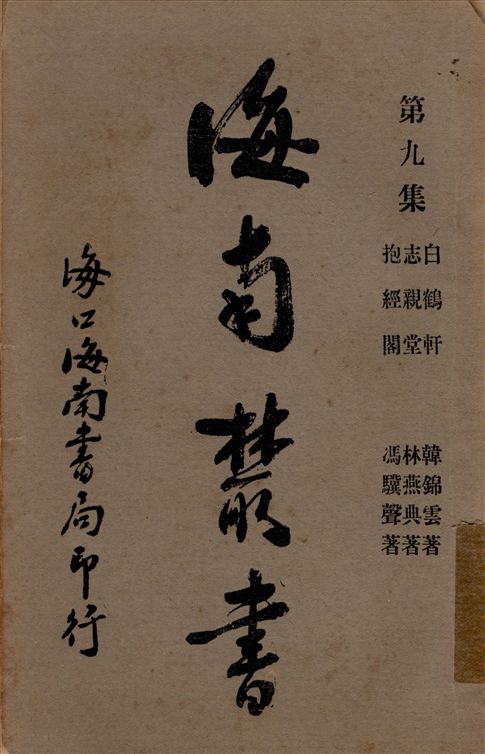 第九集
白鶴軒 韓錦雲著
志親堂 林燕典著
抱經閣 馮驥聲著
海南叢書
海口海南書局印行